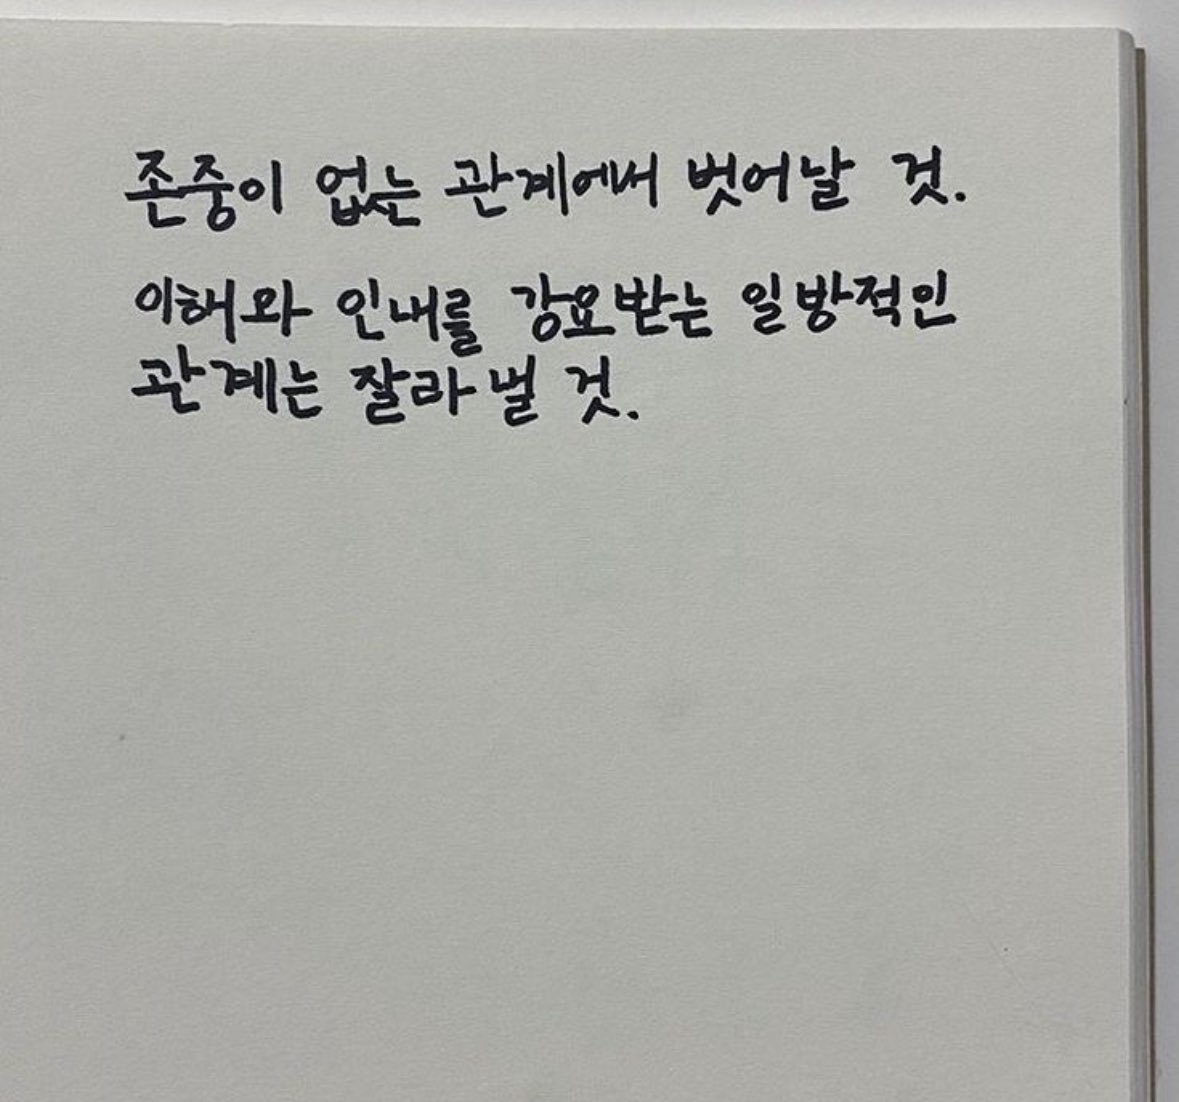 존중이 없는 관계에서 벗어날 것.
이해와 인내를 강요받는 일방적인
관계는 잘라낼 것.